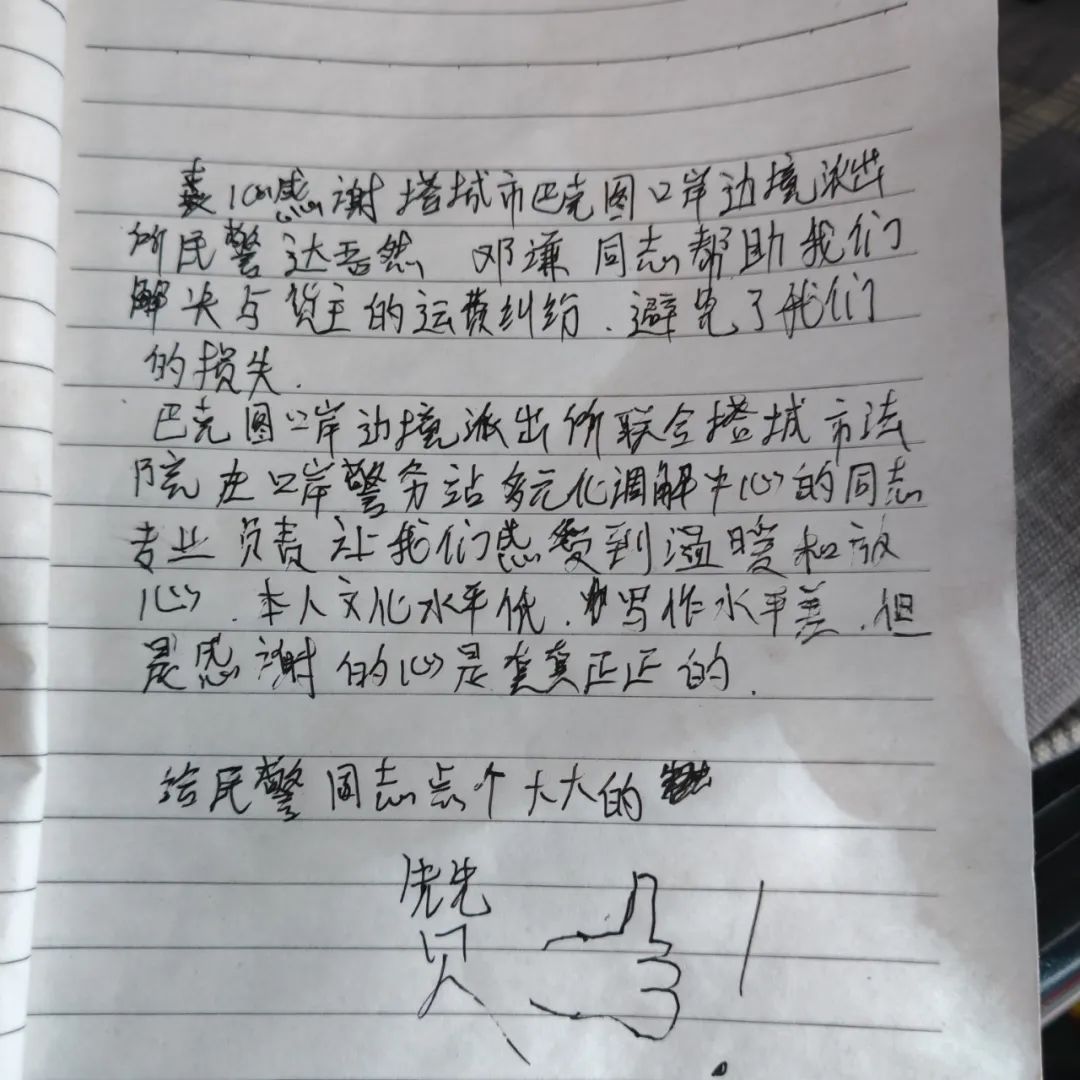 衷心感谢塔城市巴克图口岸边境派出
所民警达吾然 邓谦同志帮助我们
解决与货主的运费纠纷.避免了我们
的损失.
巴克图口岸边境派出所联合塔城市法
院在口岸警务站多元化调解中心的同志
专业负责让我们感受到温暖和放
心.本人文化水平低.写作水平差.但
是感谢的心是真真正正的.
给民警同志点个大大的
赞 !